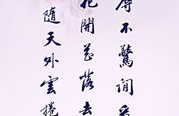 辱不驚閒看
花開花落去
隨天外雲捲